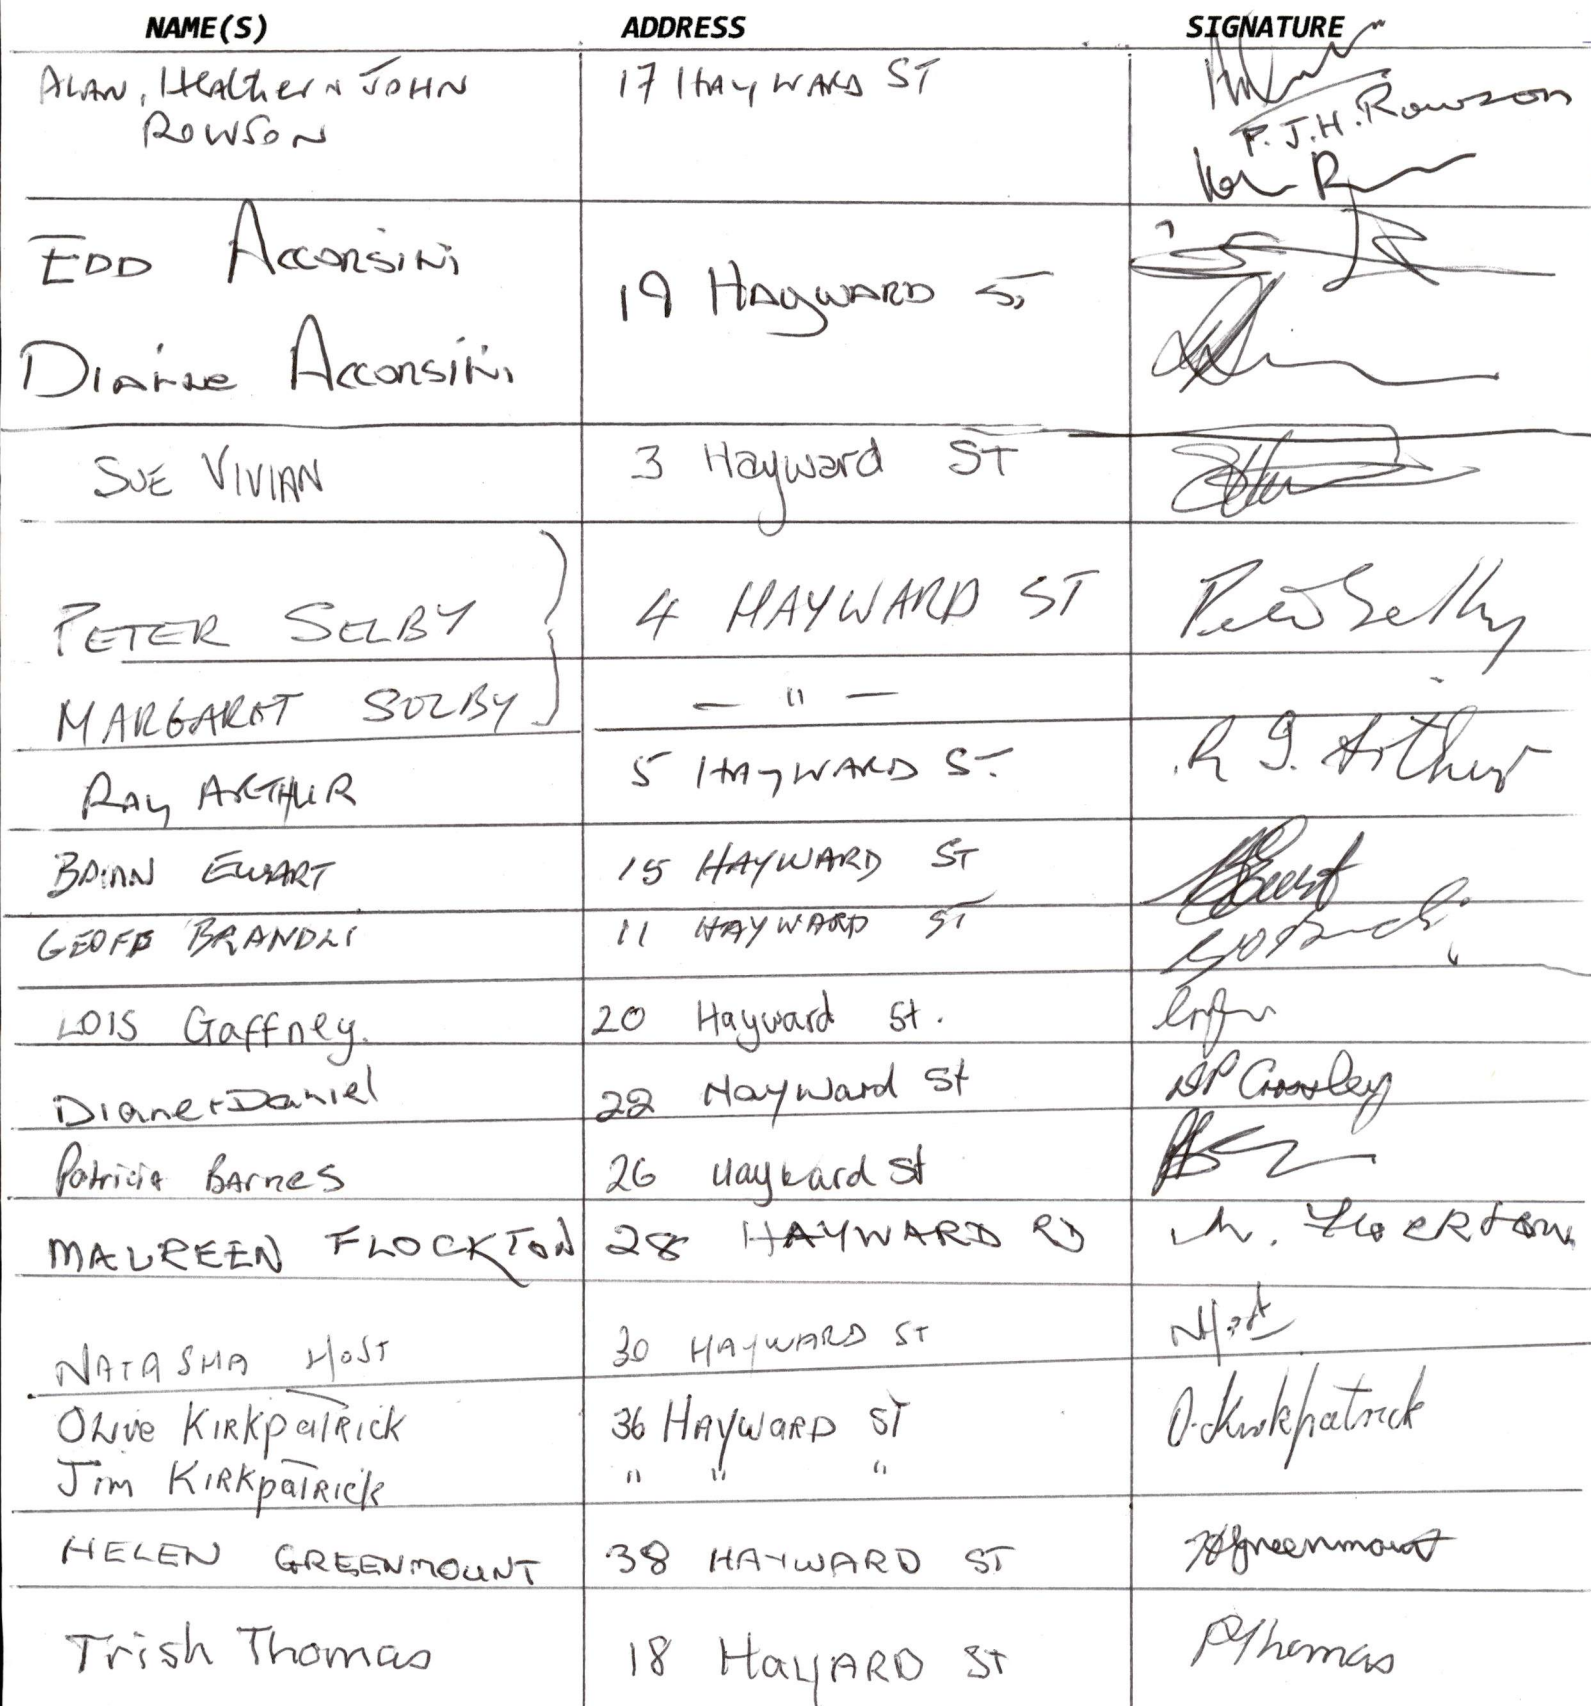 NAME(S) ADDRESS SIGNATURE
ALAN, Heather & JOHN 17 HAYWARD ST
ROWSON F.J.H. Rowson
EDD Accorsini
19 HAYWARD ST
Dianne Accorsini
SUE VIVIAN 3 Hayward ST
PETER SELBY 4 HAYWARD ST Peter Selby
MARGARET SELBY — " —
RAY ARTHUR 5 HAYWARD ST. R G. Arthur
BRIAN EWART 15 HAYWARD ST
GEOFF BRANDLI 11 HAYWARD ST
LOIS Gaffney. 20 Hayward St.
Diane + Daniel 22 Hayward St DP Crossley
Patricia Barnes 26 Hayward St
MAUREEN FLOCKTON 28 HAYWARD RD M. Flockton
NATASHA HOST 30 HAYWARD ST NHost
Olive KIRKPATRICK 36 HAYWARD ST O. Kirkpatrick
Jim KIRKPATRICK " " "
HELEN GREENMOUNT 38 HAYWARD ST HGreenmount
Trish Thomas 18 HAYARD ST PThomas